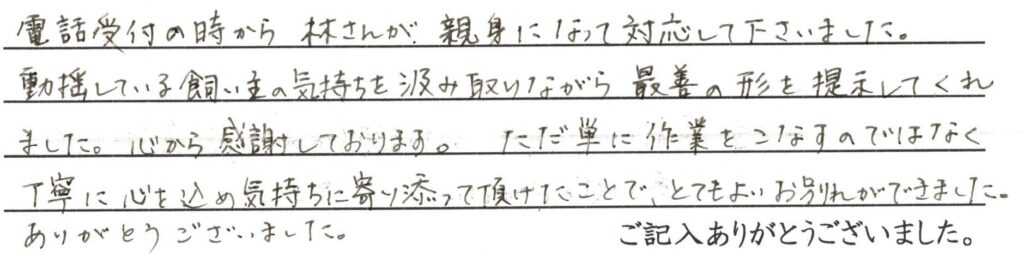 電話受付の時から 林さんが 親身になって対応して下さいました。
動揺している飼い主の気持ちを汲み取りながら 最善の形を提示してくれ
ました。心から感謝しております。 ただ単に作業をこなすのではなく
丁寧に心を込め気持ちに寄り添って頂けたことで、とてもよいお別れができました。
ありがとうございました。 ご記入ありがとうございました。